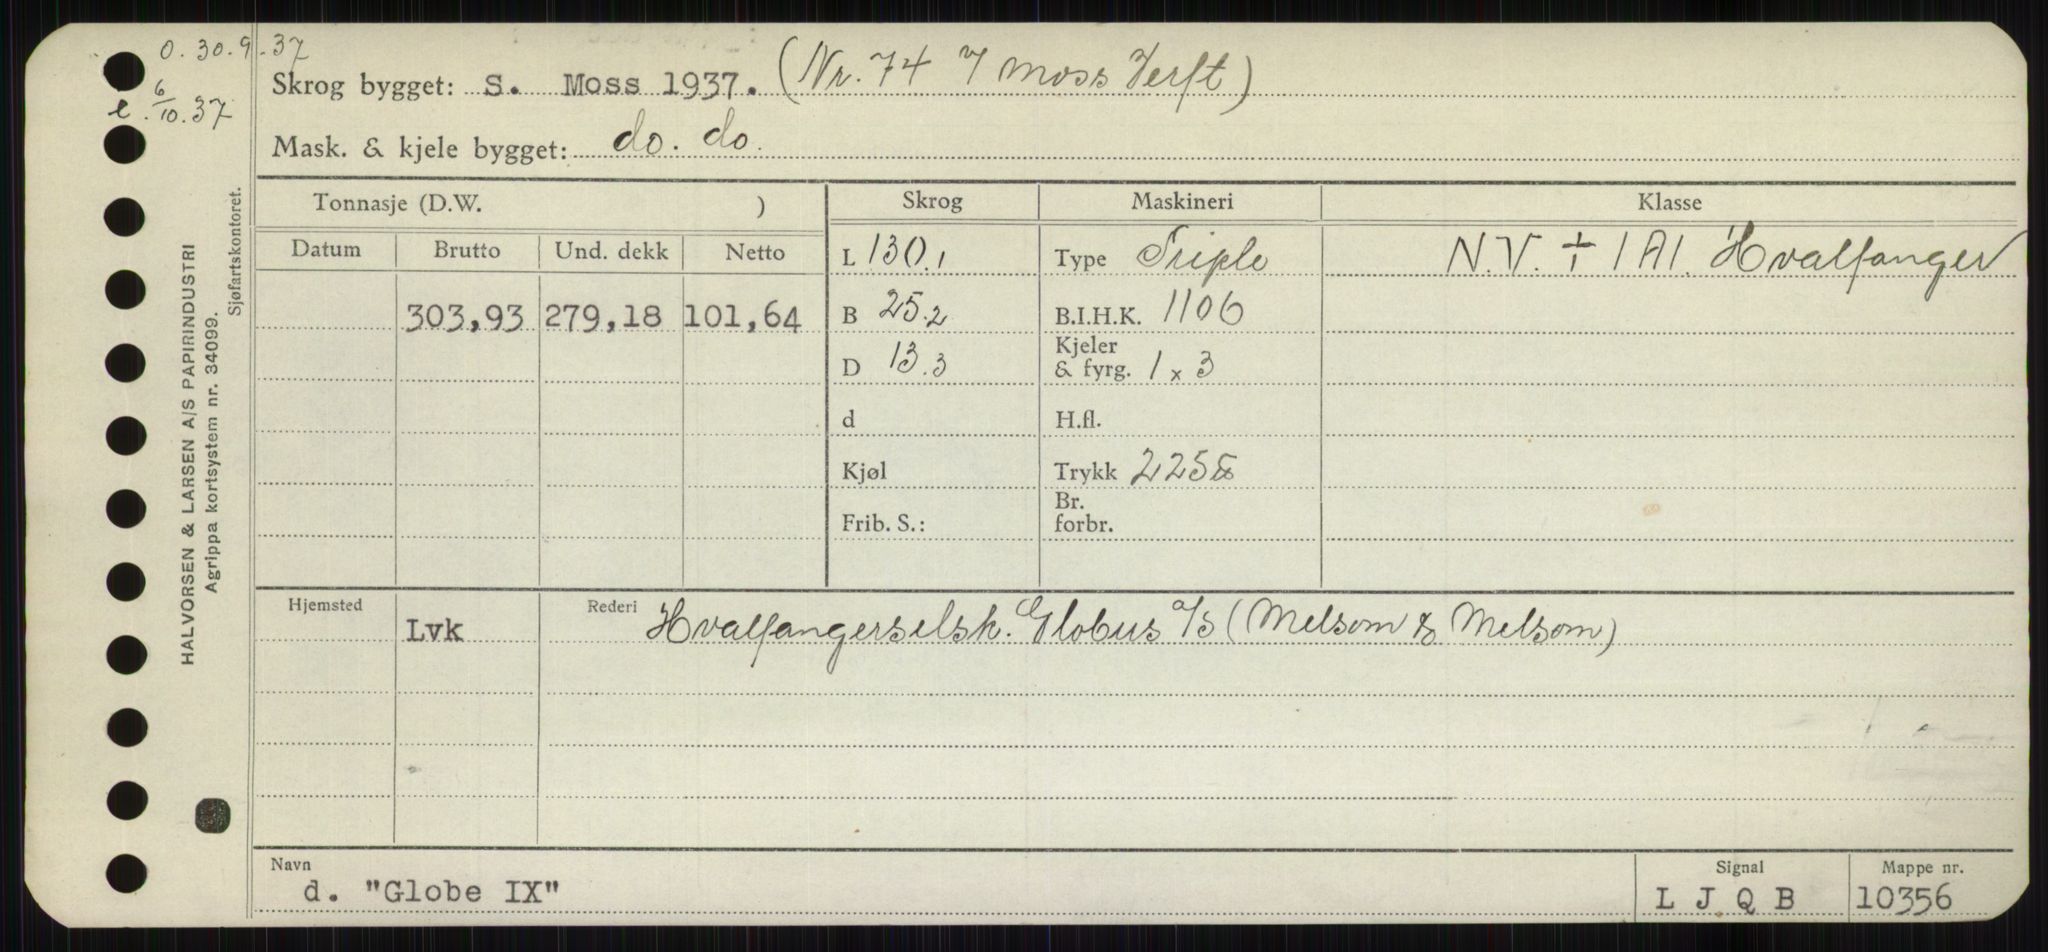 O. 30.9.37
Skrog bygget: S. Moss 1937. (Nr. 74 Moss Verft)
e. 6/10.37
Mask. & kjele bygget: do. do.
Tonnasje (D.W. ) Skrog Maskineri Klasse
Datum Brutto Und. dekk Netto L 130.1 Type Triple N.V. + 1A1. Hvalfanger
303,93 279,18 101,64 B 25.2 B.I.H.K. 1106
D 13.3 Kjeler & fyrg. 1 x 3
d H.fl.
Kjøl Trykk 225
Frib. S.: Br. forbr.
Hjemsted Lvk Rederi Hvalfangerselsk. Globus A/S (Melsom & Melsom)
Navn d. "Globe IX" Signal L J Q B Mappe nr. 10356
HALVORSEN & LARSEN A/S PAPIRINDUSTRI
Agrippa kortsystem nr. 34099.
Sjøfartskontoret.